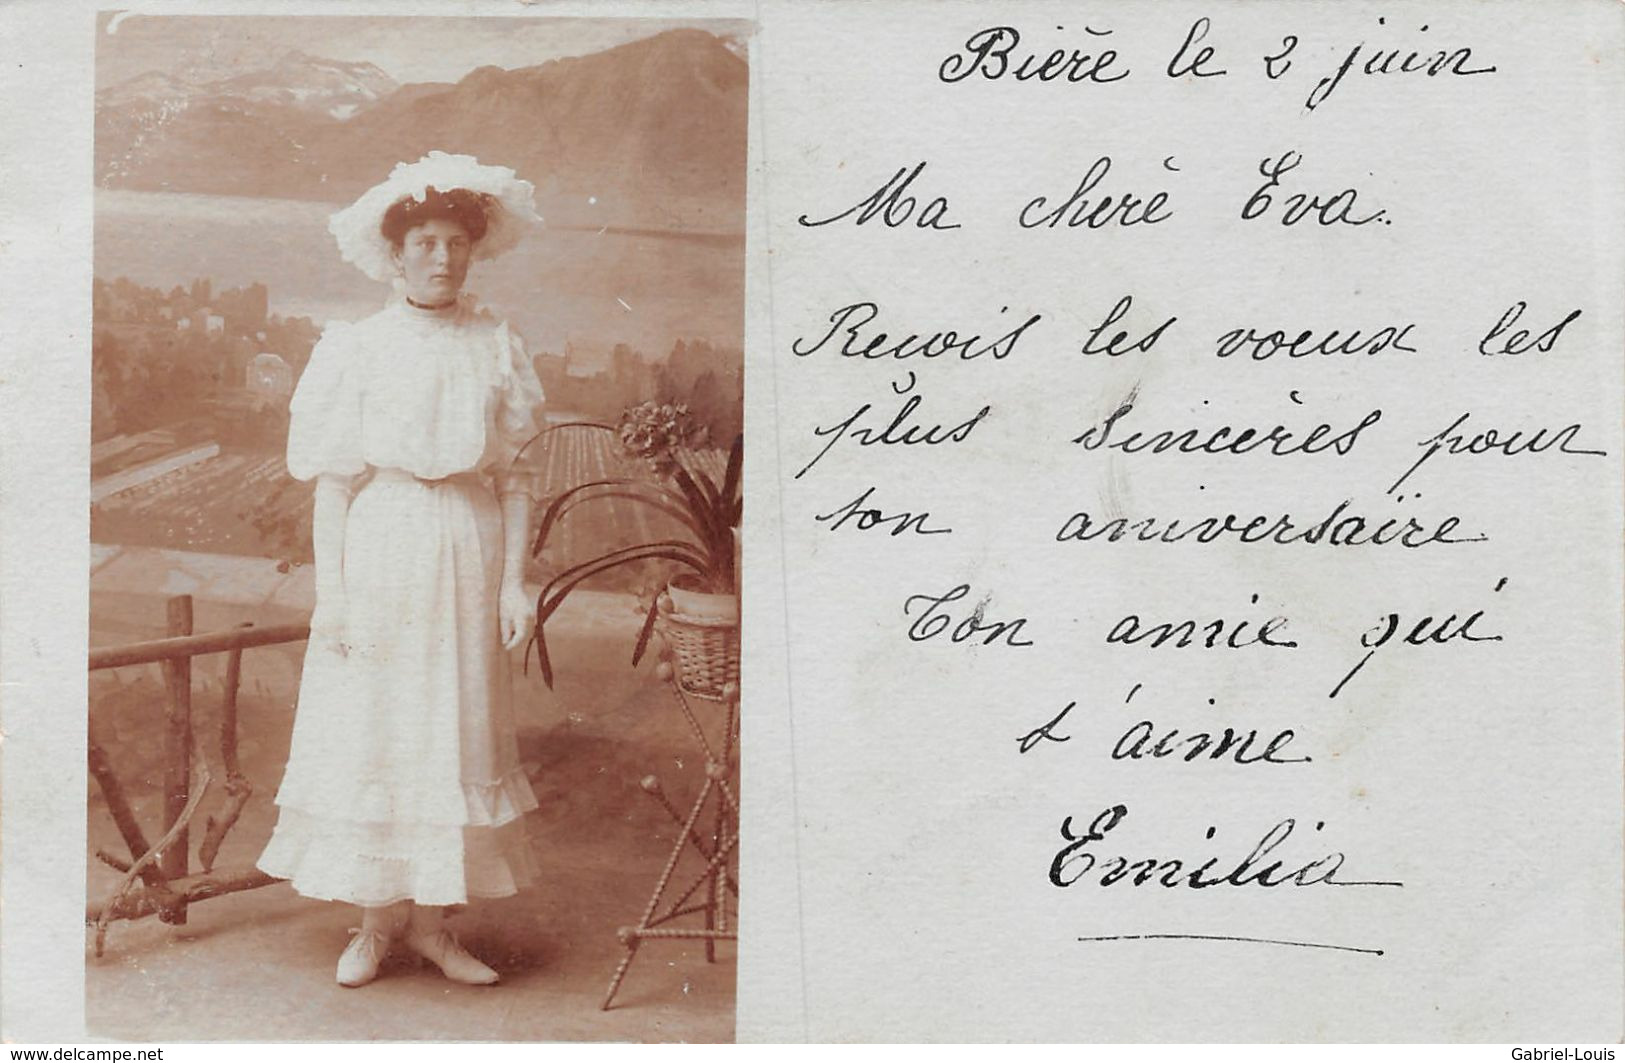 Bière le 2 juin
Ma cherè Eva.
Recois les voeux les
plus sincères pour
ton aniversaïre
Ton amie qui
t'aime
Emilia
www.delcampe.net
Gabriel-Louis